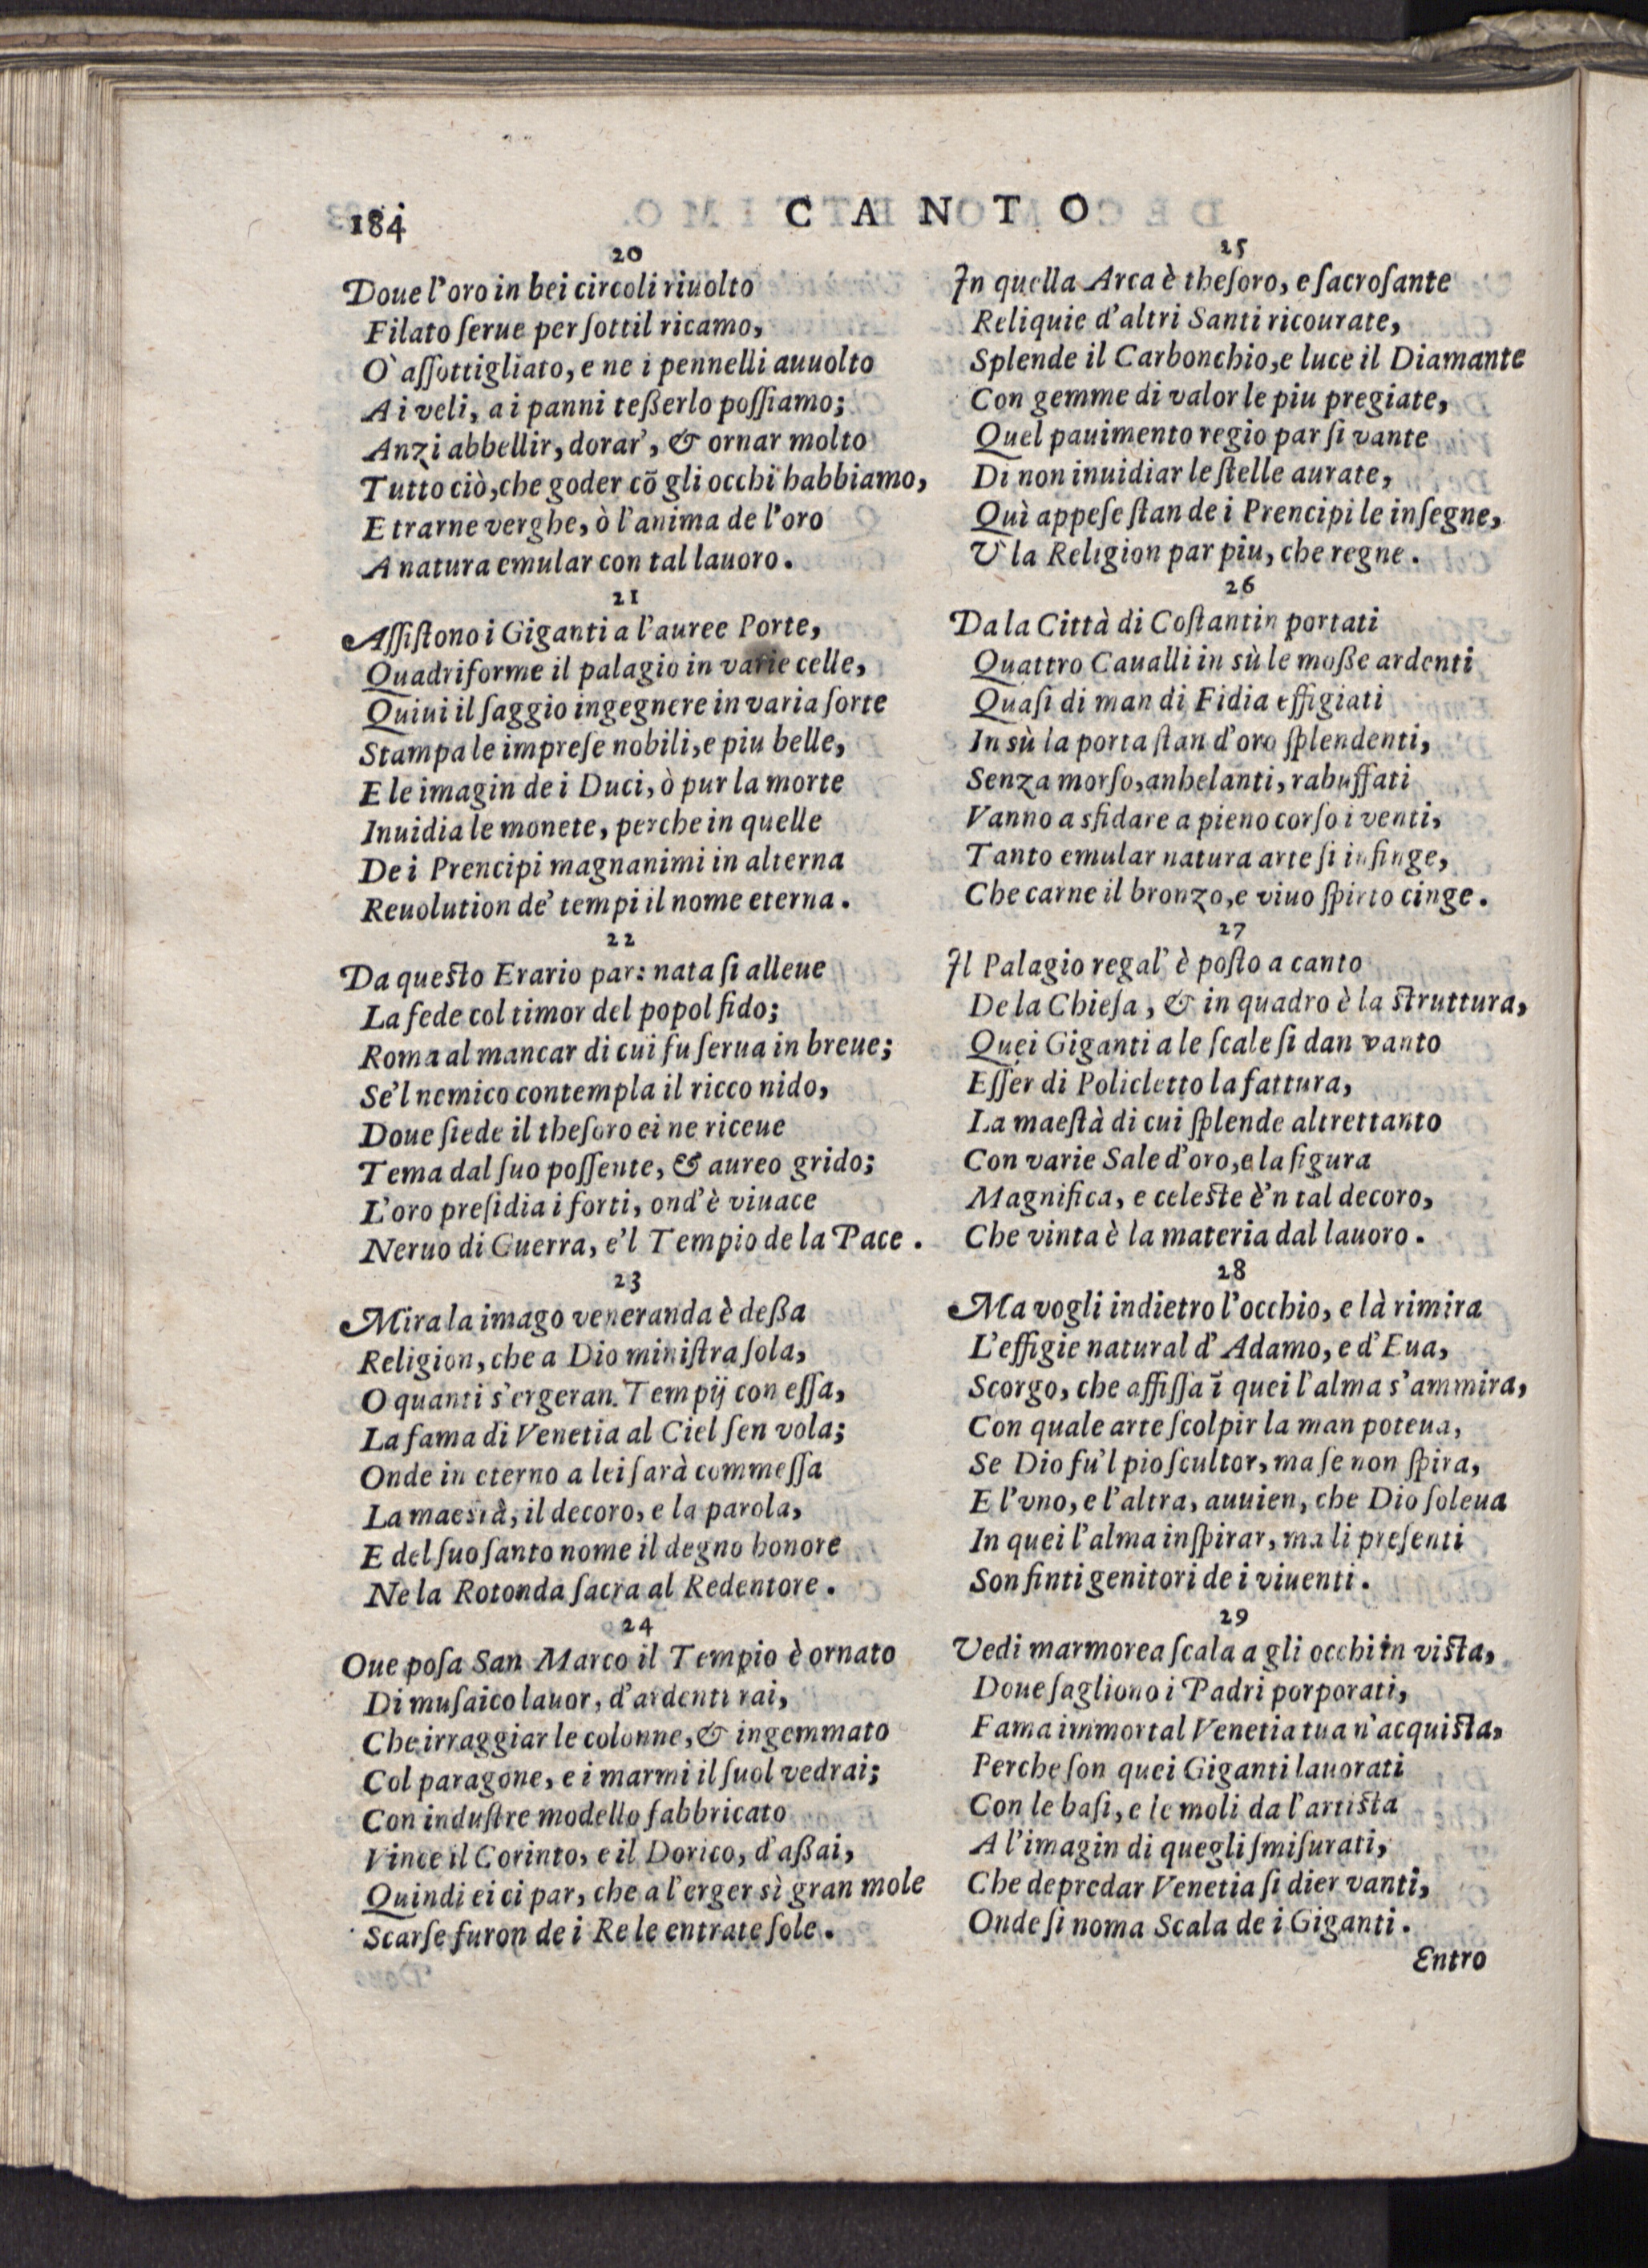 184 CANTO
20
Doue l'oro in bei circoli riuolto
Filato ſerue per ſottil ricamo,
O' aſſottigliato, e ne i pennelli auuolto
A i veli, a i panni teßerlo poſſiamo;
Anzi abbellir, dorar', & ornar molto
Tutto ciò, che goder cō gli occhi habbiamo,
E trarne verghe, ò l'anima de l'oro
A natura emular con tal lauoro.
21
Aſſiſtono i Giganti a l'auree Porte,
Quadriforme il palagio in varie celle,
Quiui il ſaggio ingegnere in varia ſorte
Stampa le impreſe nobili, e piu belle,
E le imagin de i Duci, ò pur la morte
Inuidia le monete, perche in quelle
De i Prencipi magnanimi in alterna
Reuolution de' tempi il nome eterna.
22
Da queſto Erario par: nata ſi alleue
La fede col timor del popol fido;
Roma al mancar di cui fu ſerua in breue;
Se'l nemico contempla il ricco nido,
Doue ſiede il theſoro ei ne riceue
Tema dal ſuo poſſente, & aureo grido;
L'oro preſidia i forti, ond'è viuace
Neruo di Guerra, e'l Tempio de la Pace.
23
Mira la imago veneranda è deßa
Religion, che a Dio miniſtra ſola,
O quanti s'ergeran. Tempij con eſſa,
La fama di Venetia al Ciel ſen vola;
Onde in eterno a lei ſarà commeſſa
La maestà, il decoro, e la parola,
E del ſuo ſanto nome il degno honore
Ne la Rotonda ſacra al Redentore.
24
Oue poſa San Marco il Tempio è ornato
Di muſaico lauor, d'ardenti rai,
Che irraggiar le colonne, & ingemmato
Col paragone, e i marmi il ſuol vedrai;
Con induſtre modello fabbricato
Vince il Corinto, e il Dorico, d'aßai,
Quindi ei ci par, che a l'erger sì gran mole
Scarſe furon de i Re le entrate ſole.
25
In quella Arca è theſoro, e ſacroſante
Reliquie d'altri Santi ricourate,
Splende il Carbonchio, e luce il Diamante
Con gemme di valor le piu pregiate,
Quel pauimento regio par ſi vante
Di non inuidiar le ſtelle aurate,
Quì appeſe ſtan de i Prencipi le inſegne,
V' la Religion par piu, che regne.
26
Da la Città di Coſtantin portati
Quattro Caualli in sù le moße ardenti
Quaſi di man di Fidia effigiati
In sù la porta ſtan d'oro ſplendenti,
Senza morſo, anhelanti, rabuffati
Vanno a sfidare a pieno corſo i venti,
Tanto emular natura arte ſi infinge,
Che carne il bronzo, e viuo ſpirto cinge.
27
Il Palagio regal' è poſto a canto
De la Chieſa, & in quadro è la ſtruttura,
Quei Giganti a le ſcale ſi dan vanto
Eſſer di Policletto la fattura,
La maeſtà di cui ſplende altrettanto
Con varie Sale d'oro, e la figura
Magnifica, e celeſte è'n tal decoro,
Che vinta è la materia dal lauoro.
28
Ma vogli indietro l'occhio, e là rimira
L'effigie natural d'Adamo, e d'Eua,
Scorgo, che affiſſa ī quei l'alma s'ammira,
Con quale arte ſcolpir la man poteua,
Se Dio fu'l pio ſcultor, ma ſe non ſpira,
E l'vno, e l'altra, auuien, che Dio ſoleua
In quei l'alma inſpirar, ma li preſenti
Son finti genitori de i viuenti.
29
Vedi marmorea ſcala a gli occhi in viſta,
Doue ſagliono i Padri porporati,
Fama immortal Venetia tua n'acquiſta,
Perche ſon quei Giganti lauorati
Con le baſi, e le moli da l'artiſta
A l'imagin di quegli ſmiſurati,
Che depredar Venetia ſi dier vanti,
Onde ſi noma Scala de i Giganti.
Entro